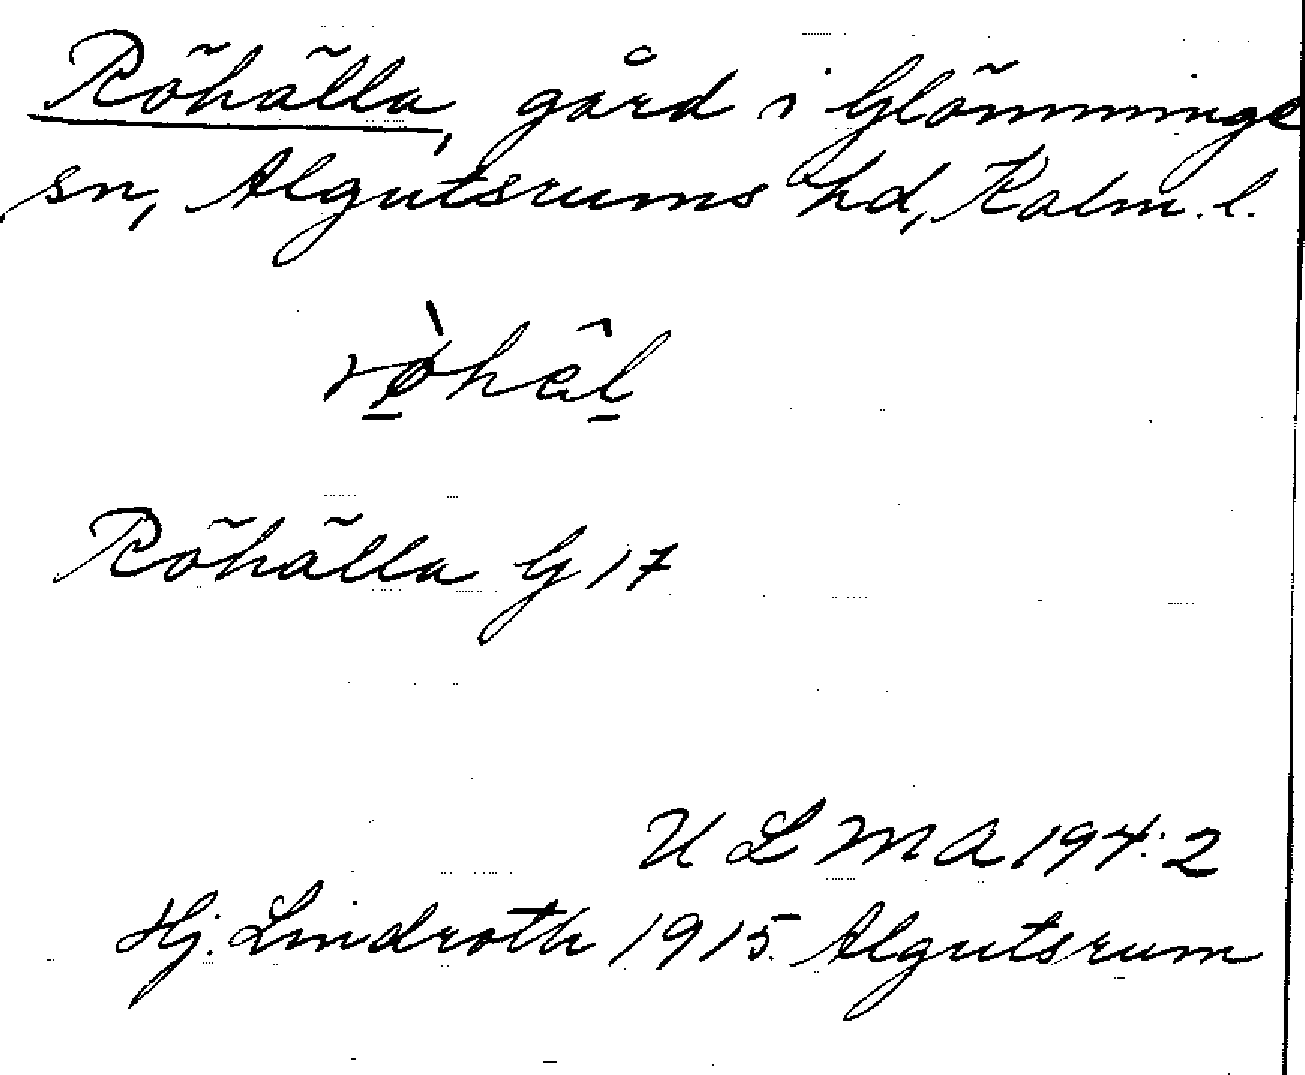 Röhälla, gård i Glömminge
sn, Algutsrums hd, Kalm. l.
Röhälla G 17
ULMA 194:2
Hj. Lindroth 1915. Algutsrum